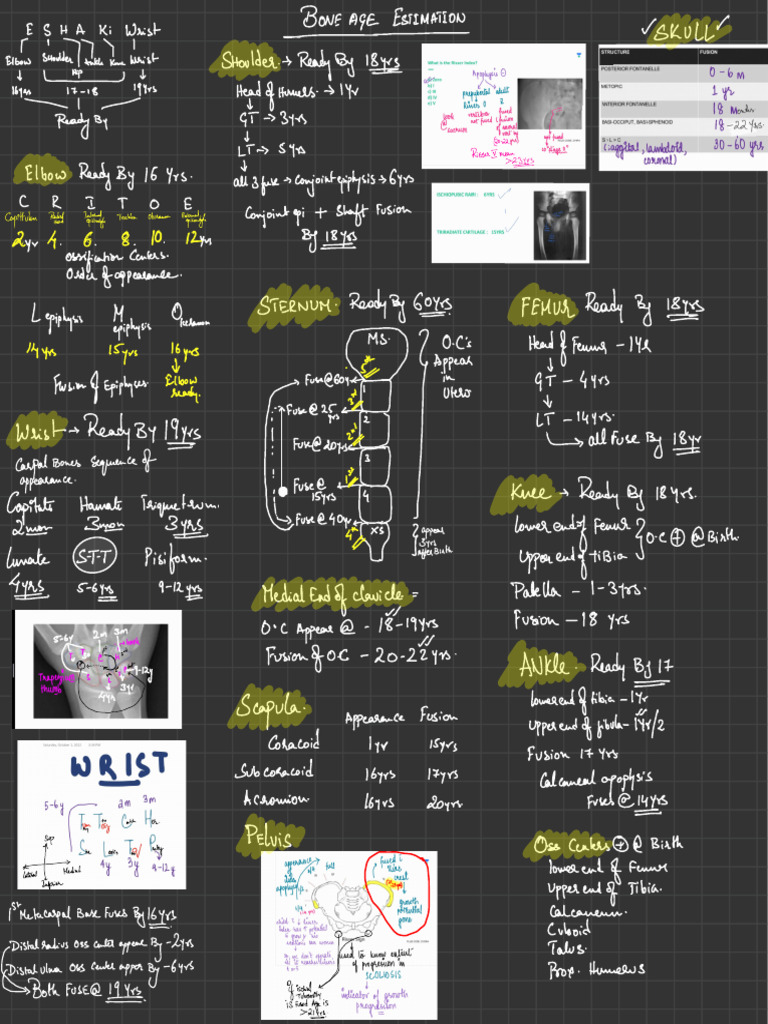 BONE AGE ESTIMATION
E S H A Ki Wrist
Elbow Shoulder Hip Ankle Knee Wrist
16yrs 17-18 19yrs
Ready By
Elbow Ready By 16 Yrs.
C R I T O E
Capitulum Radial head Internal epicondyle Trochlea Olecranon External epicondyle
2yr 4. 6. 8. 10. 12yrs
Ossification Centers.
Order of appearance.
L epiphysis M epiphysis Olecranon
14yrs 15yrs 16yrs
Fusion of Epiphyses Elbow ready.
Wrist → Ready By 19yrs
Carpal Bones Sequence of
appearance.
Capitate Hamate Triquetrum.
2mon 3mon 3yrs
Lunate S-T-T Pisiform.
4yrs 5-6yrs 9-12yrs
5-6y 2m 3m
9-12y
4yr 3yr
WRIST
5-6y 2m 3m
Sup
Lateral Medial
Inferior
4y 3y 9-12y
1st Metacarpal Base Fuses By 16yrs
Distal radius oss center appears By -2yrs
Distal ulna oss center appear By -6yrs
Both FUSE @ 19yrs
Shoulder → Ready By 18yrs
Head of Humerus → 1yr
GT → 3yrs
LT → 5yrs
all 3 fuse → Conjoint epiphysis → 6yrs
Conjoint epi + Shaft Fusion
By 18yrs
What is the Risser Index?
Apophysis
Risser V mean
>23yrs
ISCHIOPUBIC RAMI : 6YRS
TRIRADIATE CARTILAGE : 15YRS
STERNUM. Ready By 60yrs
MS.
O.C's
Appear
in
Utero
Fuse @ 60yr 5th
1
Fuse @ 25 yrs 3rd
2
Fuse @ 20yrs 2nd
3
Fuse @ 15yrs 1st
4
Fuse @ 40yr 4th
XS
appear
3yrs
after Birth
Medial End of clavicle =
O.C Appear @ - 18-19yrs
Fusion of O.C - 20-22yrs.
Scapula.
Appearance Fusion
Coracoid 1yr 15yrs
Subcoracoid 16yrs 17yrs
Acromion 16yrs 20yrs
PELVIS
appearance
of
iliac
apophysis
growth
potential
gone
used to know extent
of progression in
SCOLIOSIS
indicator of growth
progression
If Ischial
Tuberosity
is fused Age is
>21yrs
✓SKULL✓
STRUCTURE FUSION
POSTERIOR FONTANELLE 0-6m
METOPIC 1yr
ANTERIOR FONTANELLE 18 Months
BASI-OCCIPUT, BASISPHENOID 18-22yrs.
S > L > C 30-60yrs
(sagittal, lambdoid,
coronal)
FEMUR Ready By 18yrs
Head of Femur - 1yr
GT - 4yrs
LT - 14yrs.
all Fuse By 18yr
Knee → Ready By 18yrs.
Lower end of Femur
Upper end of Tibia
O.C ⊕ @ Birth
Patella - 1-3yrs.
Fusion - 18 yrs
ANKLE Ready By 17
Lower end of tibia - 1yr
Upper end of fibula - 1yr/2
Fusion 17yrs
Calcaneal apophysis
Fuses @ 14yrs
Oss Centers ⊕ @ Birth
Lower end of Femur
Upper end of Tibia.
Calcaneum.
Cuboid
Talus.
Prox. Humerus